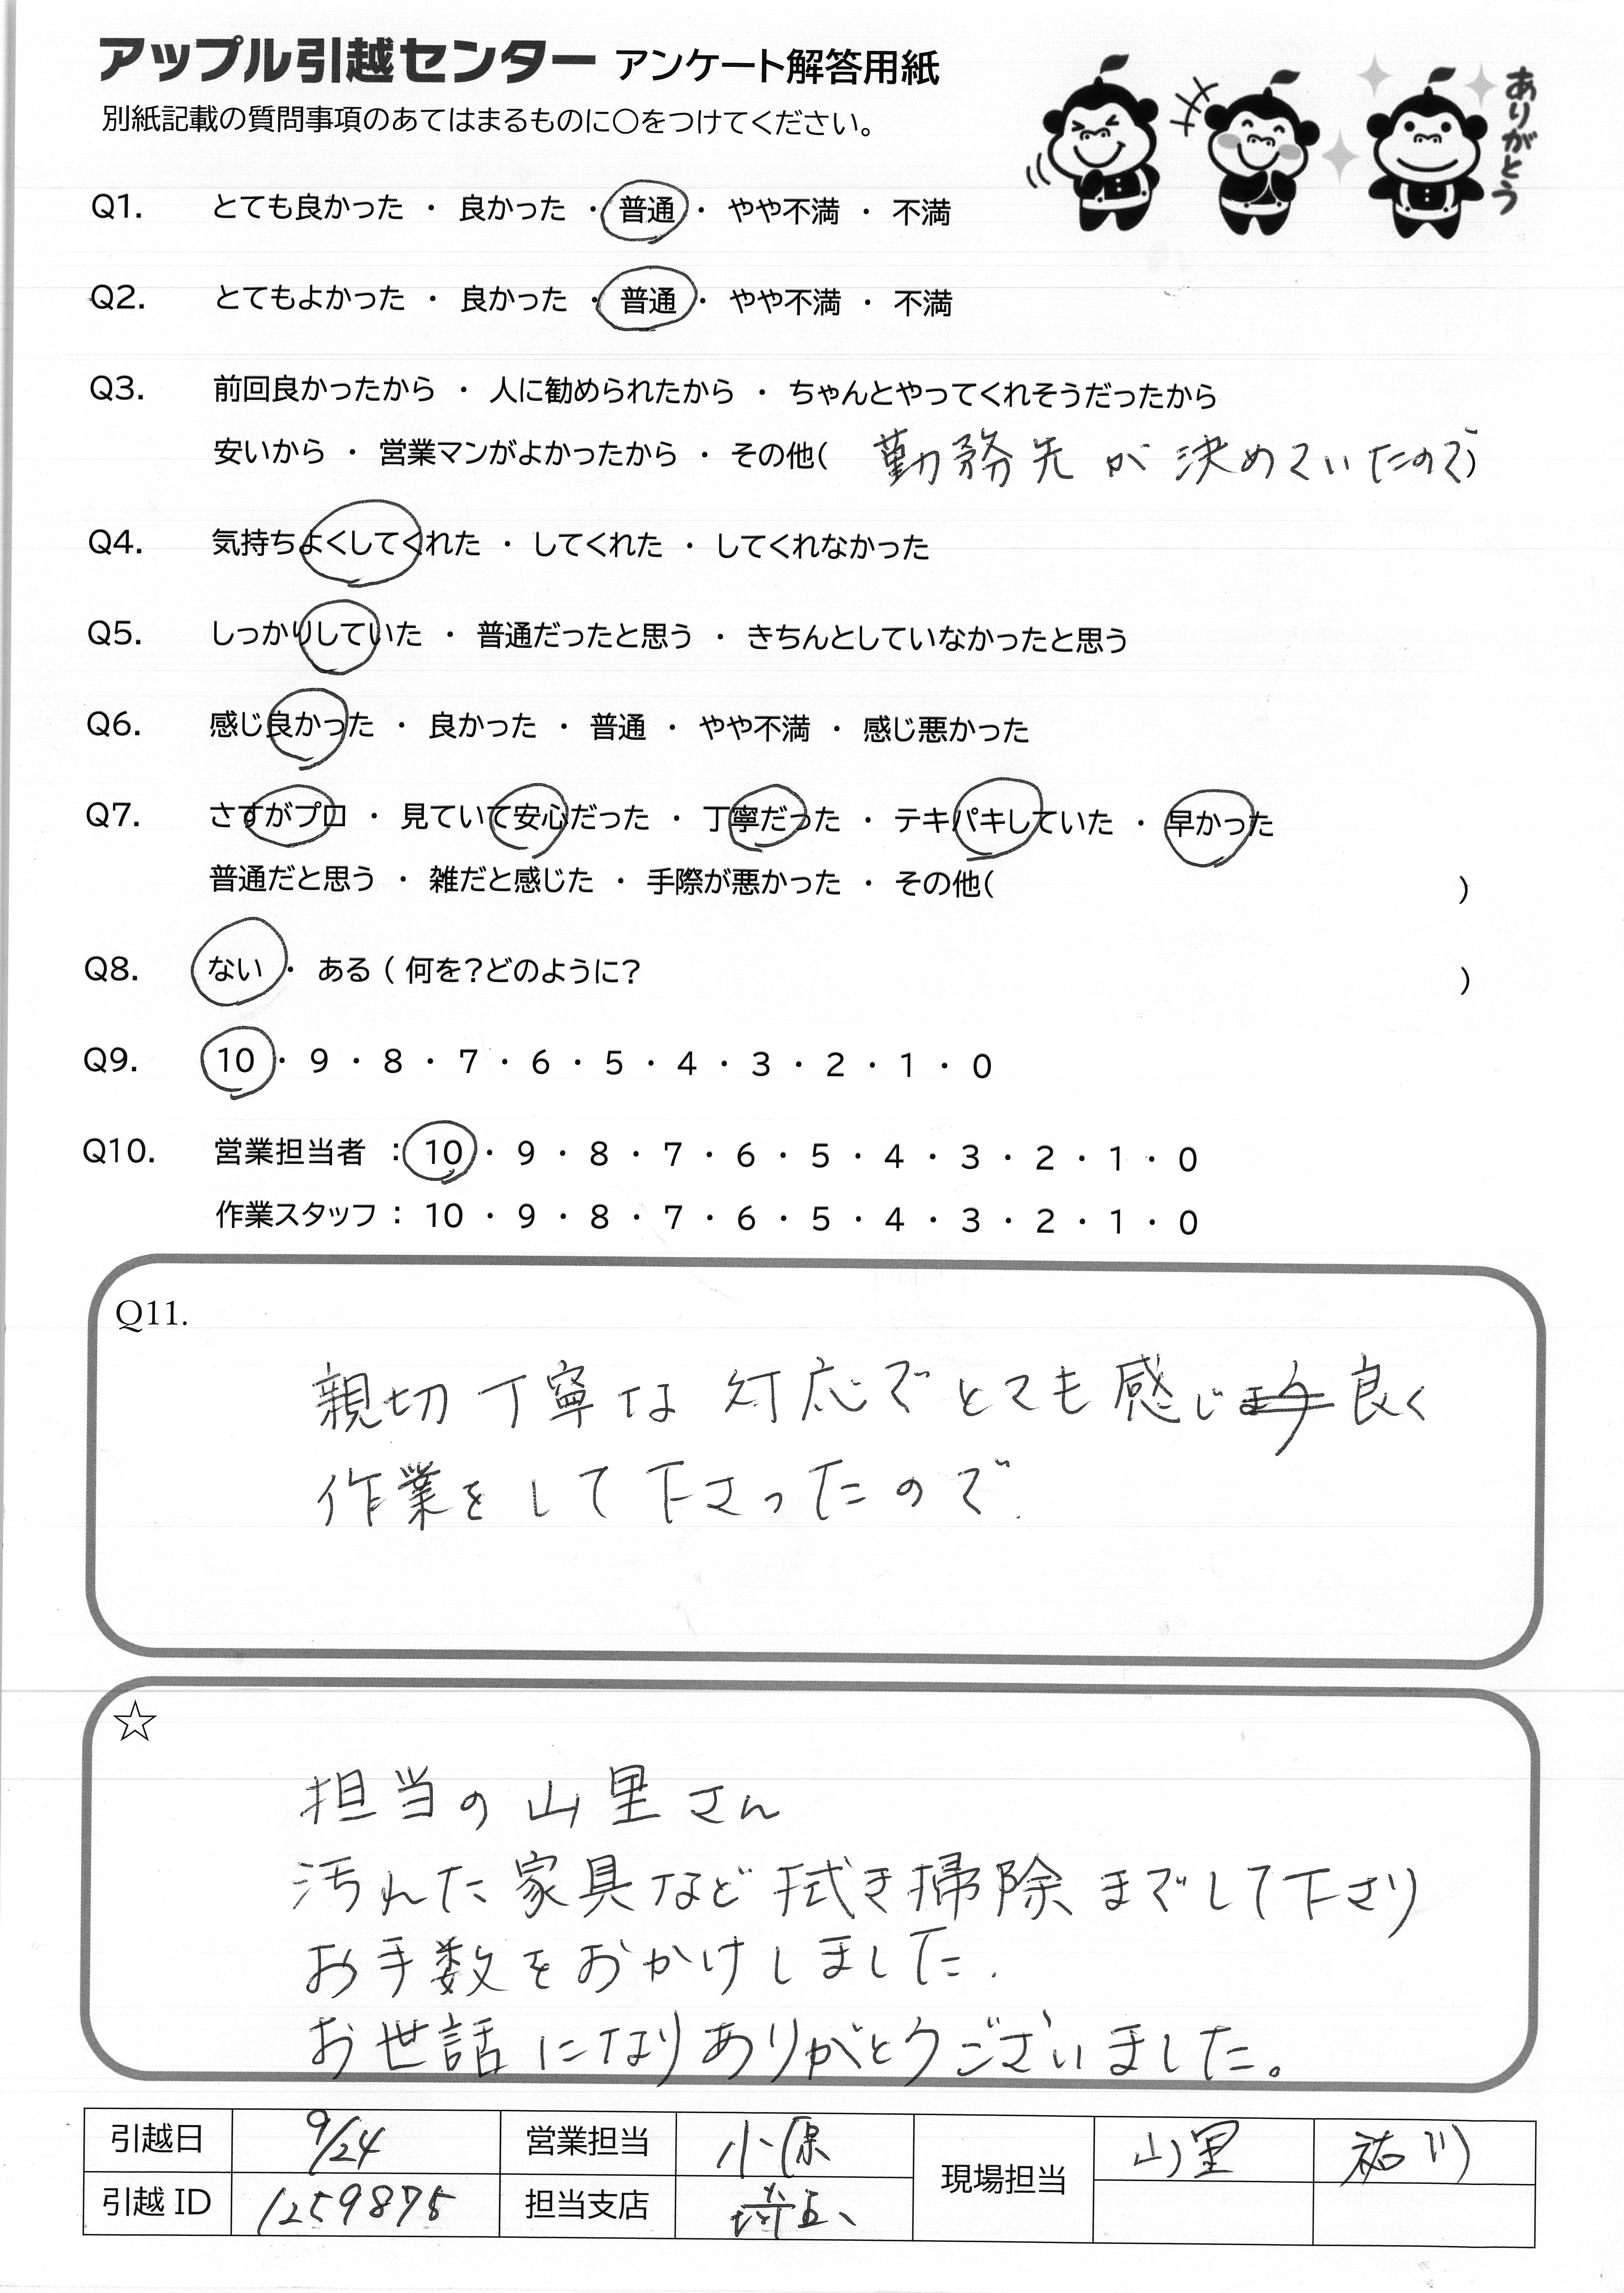 アップル引越センター アンケート解答用紙
別紙記載の質問事項のあてはまるものに○をつけてください。
ありがとう
Q1. とても良かった ・ 良かった ・ 普通 ・ やや不満 ・ 不満
Q2. とてもよかった ・ 良かった ・ 普通 ・ やや不満 ・ 不満
Q3. 前回良かったから ・ 人に勧められたから ・ ちゃんとやってくれそうだったから
安いから ・ 営業マンがよかったから ・ その他( 勤務先が決めていたので)
Q4. 気持ちよくしてくれた ・ してくれた ・ してくれなかった
Q5. しっかりしていた ・ 普通だったと思う ・ きちんとしていなかったと思う
Q6. 感じ良かった ・ 良かった ・ 普通 ・ やや不満 ・ 感じ悪かった
Q7. さすがプロ ・ 見ていて安心だった ・ 丁寧だった ・ テキパキしていた ・ 早かった
普通だと思う ・ 雑だと感じた ・ 手際が悪かった ・ その他( )
Q8. ない ・ ある ( 何を?どのように? )
Q9. 10 ・ 9 ・ 8 ・ 7 ・ 6 ・ 5 ・ 4 ・ 3 ・ 2 ・ 1 ・ 0
Q10. 営業担当者 : 10 ・ 9 ・ 8 ・ 7 ・ 6 ・ 5 ・ 4 ・ 3 ・ 2 ・ 1 ・ 0
作業スタッフ : 10 ・ 9 ・ 8 ・ 7 ・ 6 ・ 5 ・ 4 ・ 3 ・ 2 ・ 1 ・ 0
Q11.
親切丁寧な対応でとても感じ良く
作業をして下さったので.
☆
担当の山里さん
汚れた家具など拭き掃除までして下さり
お手数をおかけしました.
お世話になりありがとうございました。
引越日 9/24 営業担当 現場担当 山里
引越ID 1259875 担当支店 埼玉